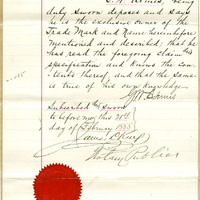 duly sworn deposes and says
he is the exclusive owner of the
Trade Mark and Name hereinbefore
mentioned and described; that he
has read the foregoing claim and
specification and knows the Con-
tents thereof, and that the same
is true of his own knowledge
Subscribed and Sworn
to before me, this 28th
day of February
Notary Public